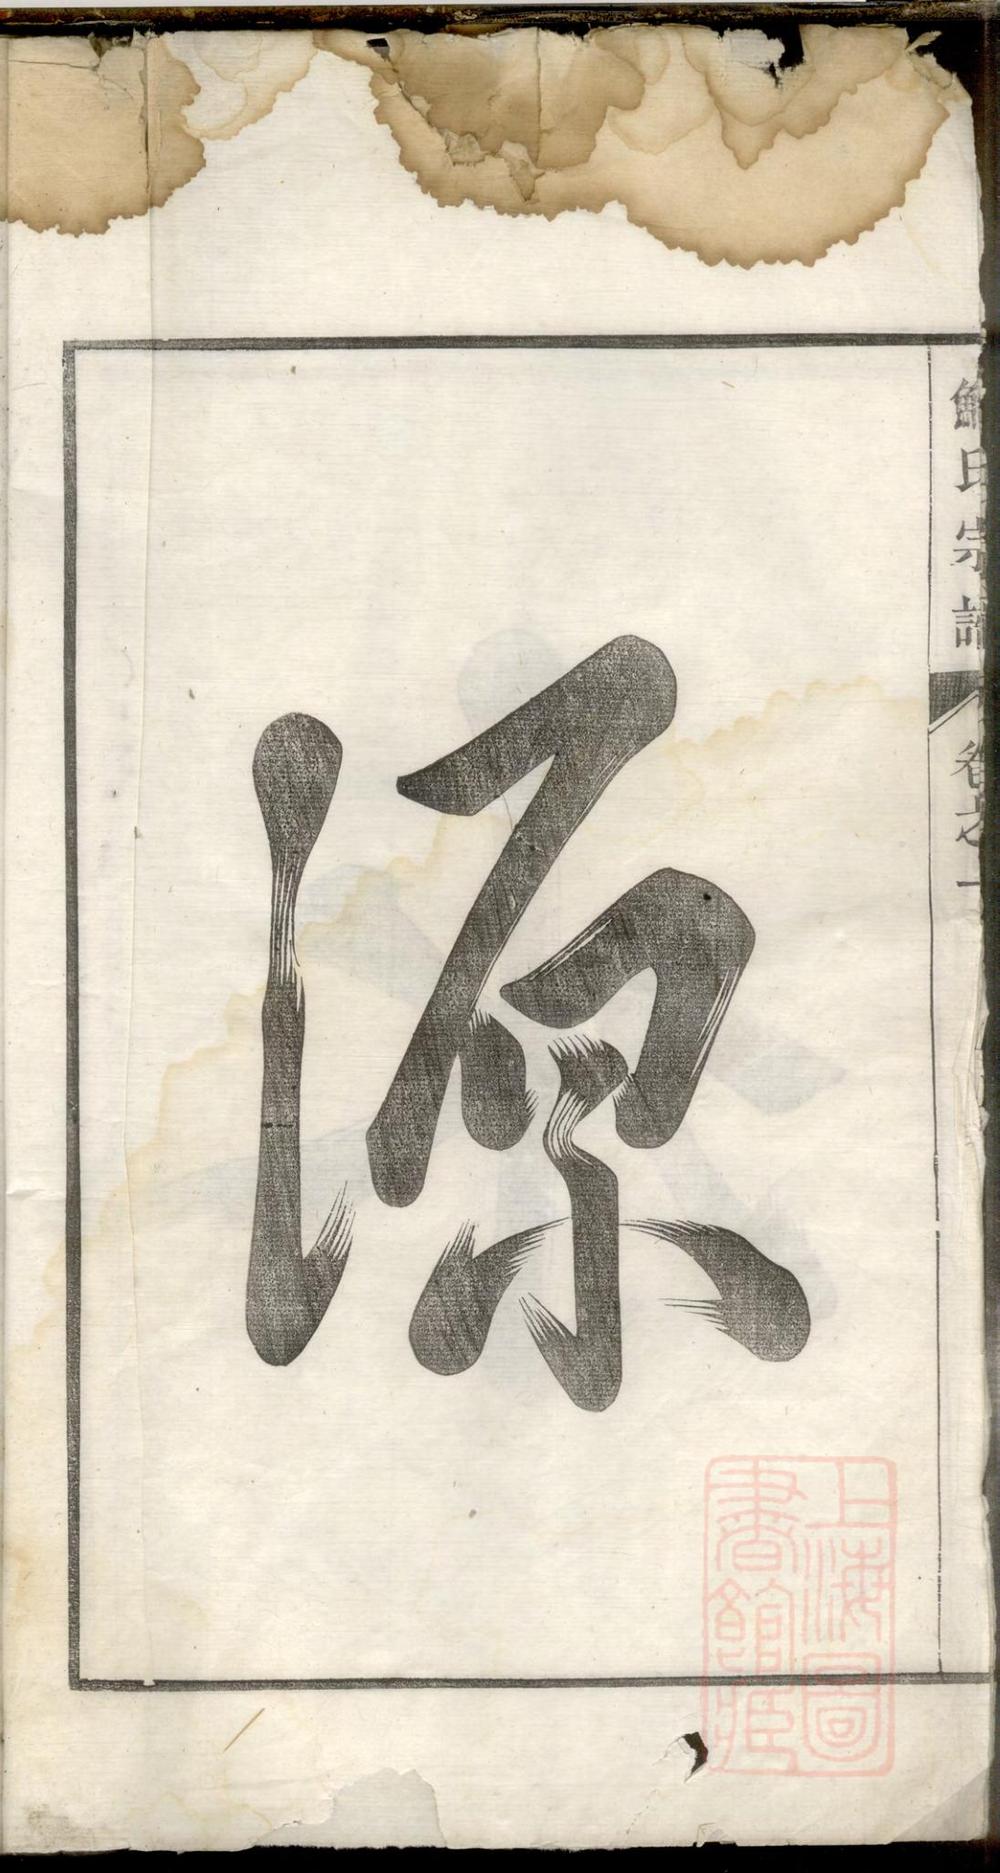 氏宗譜
卷之一
源
上海圖
書館藏